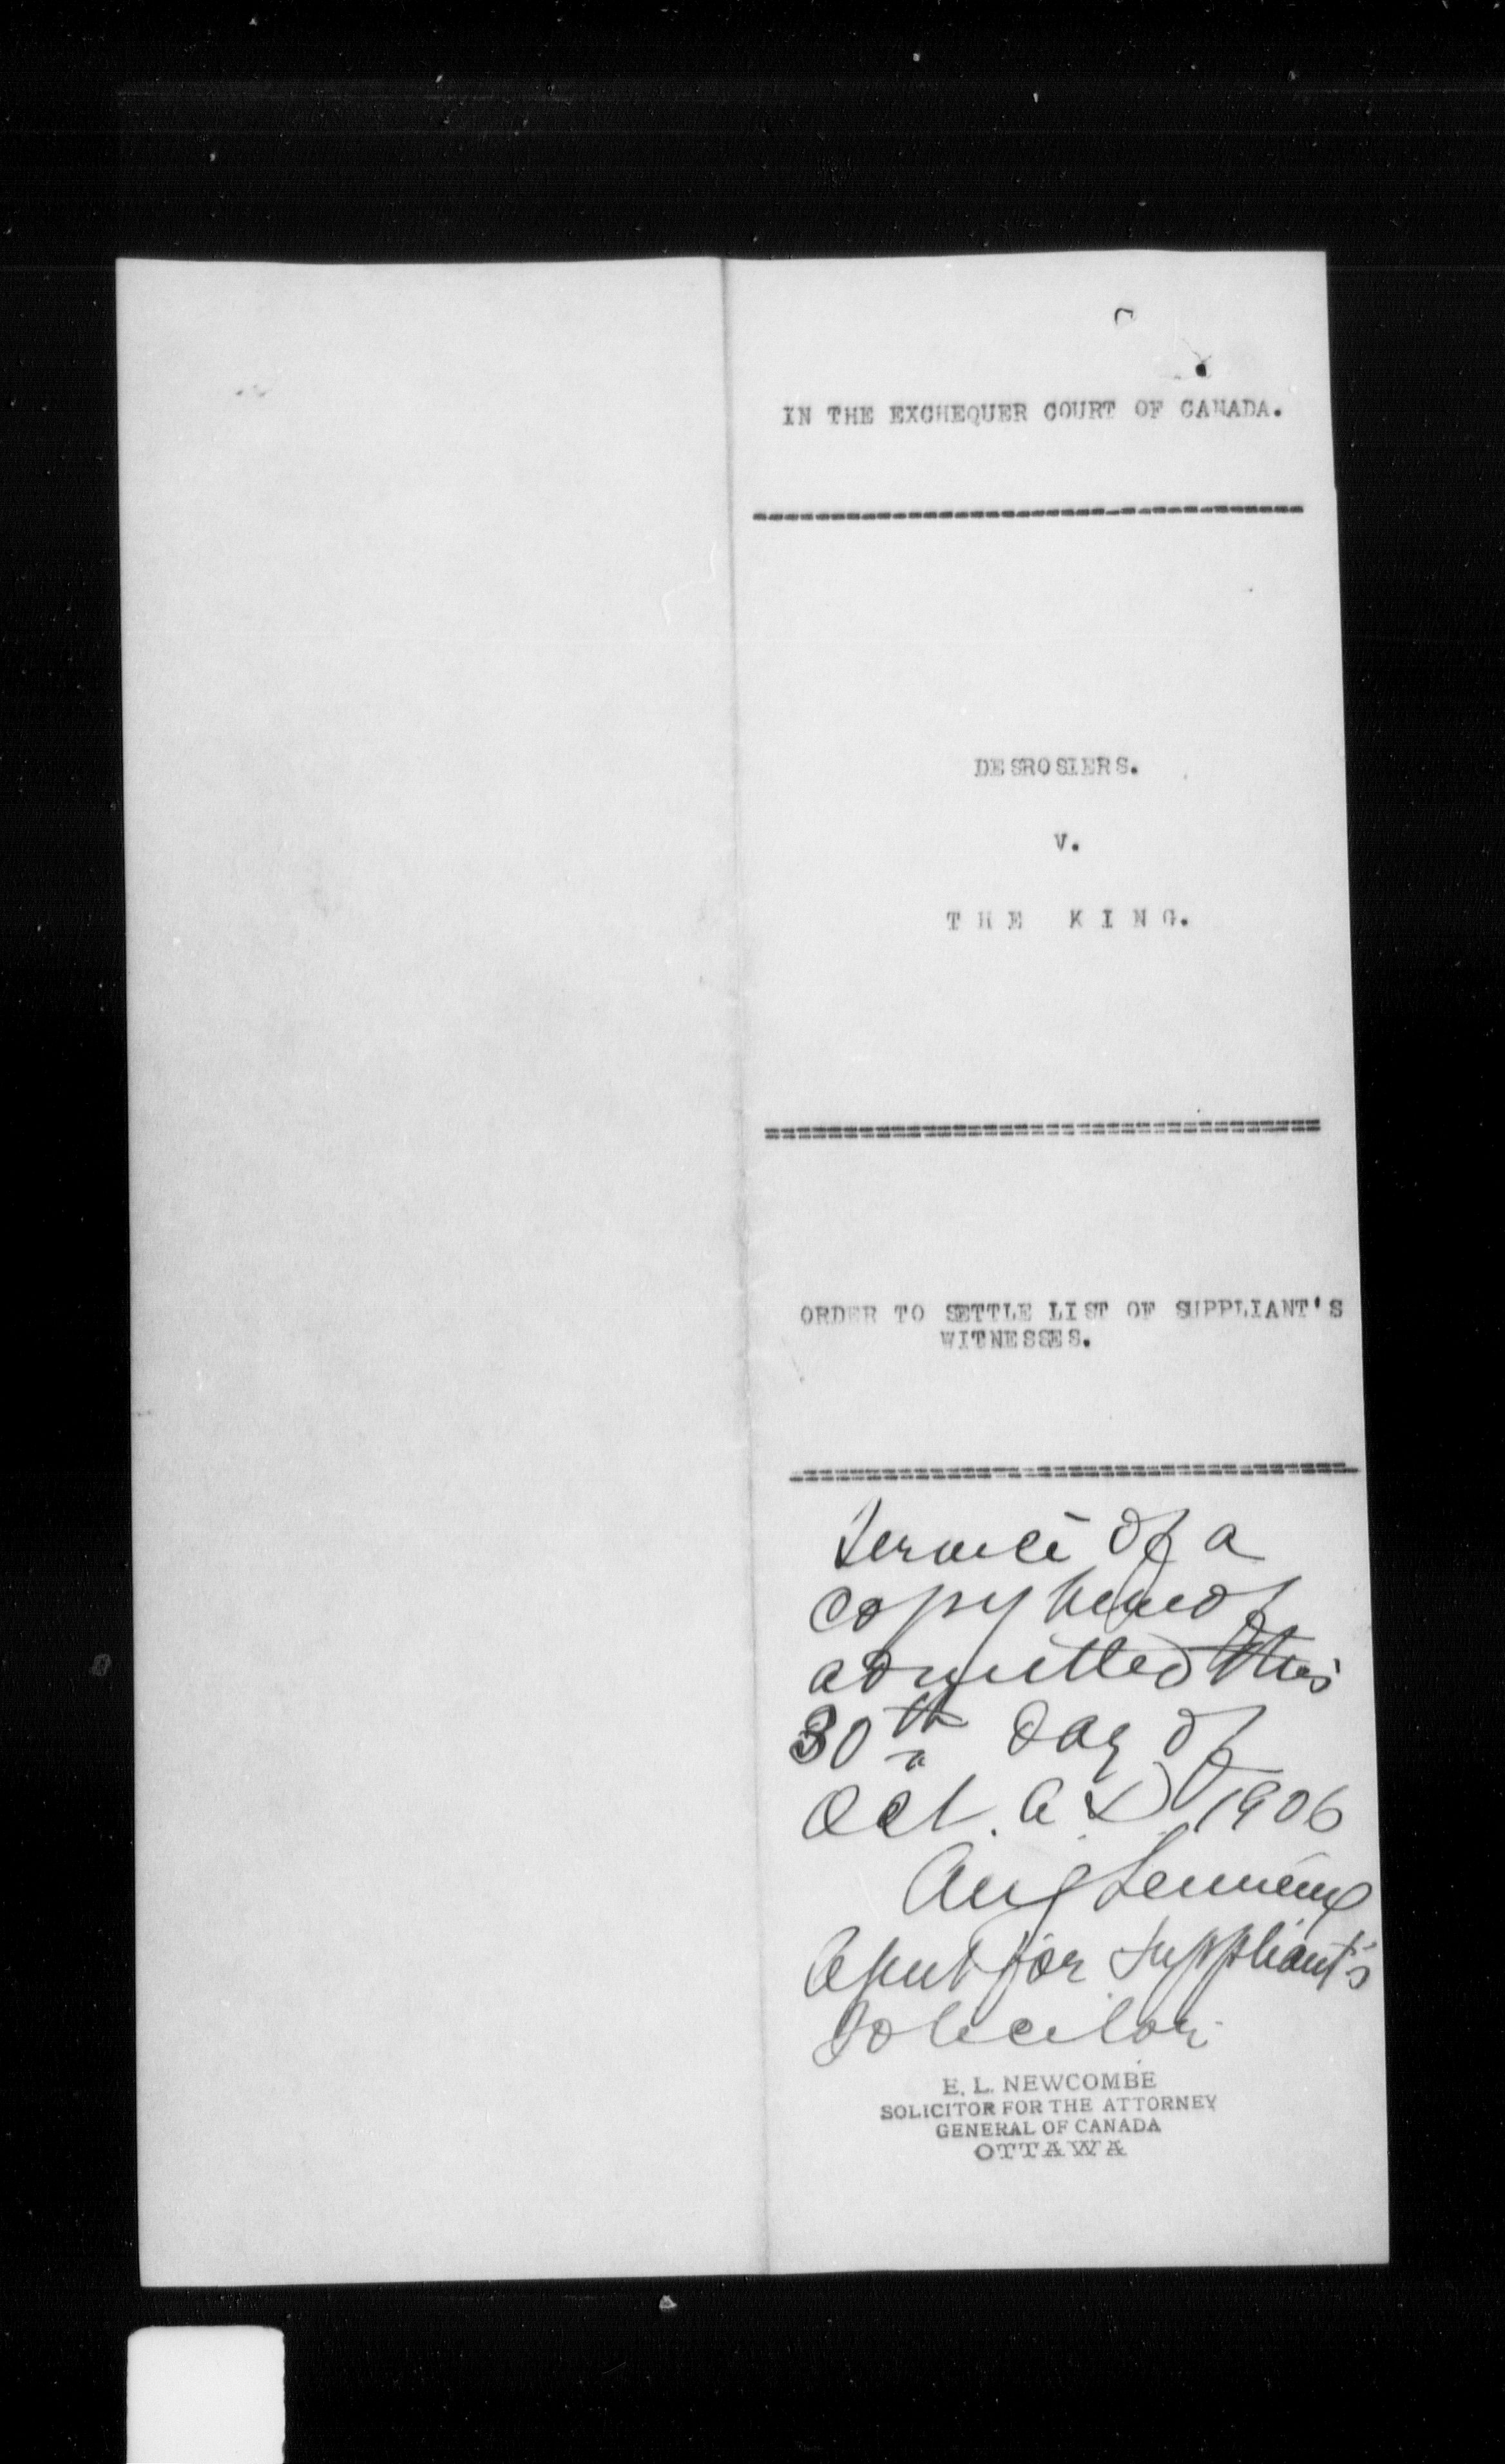 IN THE EXCHEQUER COURT OF CANADA.
DESROSIERS.
V.
THE KING.
ORDER TO SETTLE LIST OF SUPPLIANT'S
WITNESSES.
Service of a
copy hereof
admitted this
30th day of
Oct. A D 1906
Aug Lemieux
Agent for Suppliant's
Solicitor
E. L. NEWCOMBE
SOLICITOR FOR THE ATTORNEY
GENERAL OF CANADA
OTTAWA